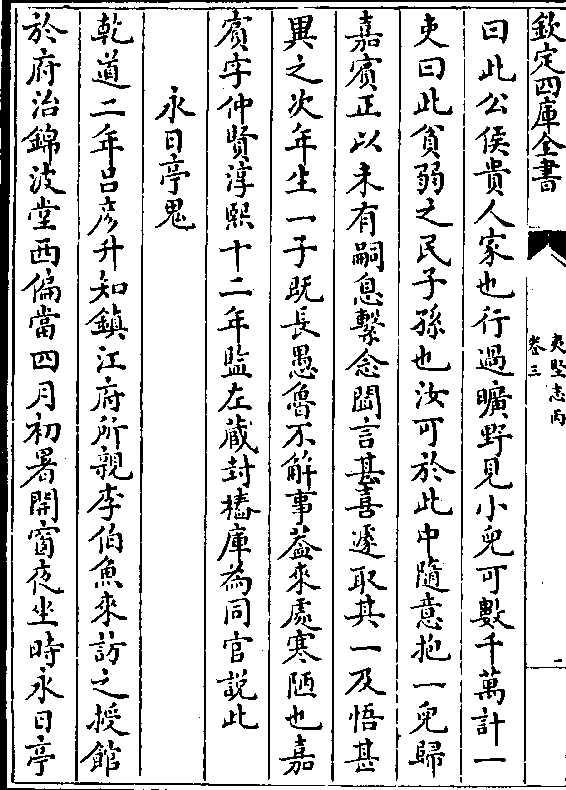 欽定四庫全書
夷堅志丙
卷三
二
曰此公侯貴人家也行過曠野見小兒可數千萬計一
吏曰此貧弱之民子孫也汝可於此中隨意抱一兒歸
嘉賓正以未有嗣息繫念聞言甚喜遂取其一及悟甚
異之次年生一子既長愚魯不解事葢來處寒陋也嘉
賓字仲賢淳熙十二年監左蔵封樁庫為同官説此
永日亭鬼
乾道二年吕彦升知鎮江府所親李伯魚來訪之授館
於府治錦波堂西偏當四月初暑開窗夜坐時永日亭